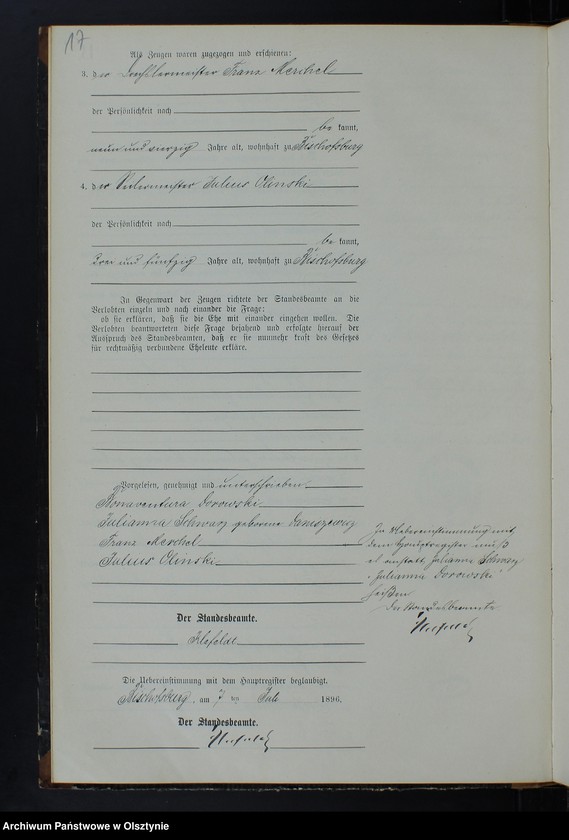 17
Als Zeugen waren zugezogen und erschienen:
3. der Tischlermeister Franz Merchel
der Persönlichkeit nach
be kannt,
neun und vierzig Jahre alt, wohnhaft zu Bischofsburg
4. der Seilermeister Julius Olinski
der Persönlichkeit nach
be kannt,
drei und fünfzig Jahre alt, wohnhaft zu Bischofsburg
In Gegenwart der Zeugen richtete der Standesbeamte an die
Verlobten einzeln und nach einander die Frage:
ob sie erklären, daß sie die Ehe mit einander eingehen wollen. Die
Verlobten beantworteten diese Frage bejahend und erfolgte hierauf der
Ausspruch des Standesbeamten, daß er sie nunmehr kraft des Gesetzes
für rechtmäßig verbundene Eheleute erkläre.
Vorgelesen, genehmigt und unterschrieben
Bonaventura Dorowski
Julianna Schwarz geborene
Franz Merchel
Julius Olinski
Der Standesbeamte.
In Uebereinstimmung mit
dem Hauptregister muß
es anstatt Julianna Schwarz
"Julianna Dorowski"
heißen
Der Standesbeamte
Die Uebereinstimmung mit dem Hauptregister beglaubigt.
Bischofsburg, am 7 ten Juli 1896.
Der Standesbeamte.
Archiwum Państwowe w Olsztynie